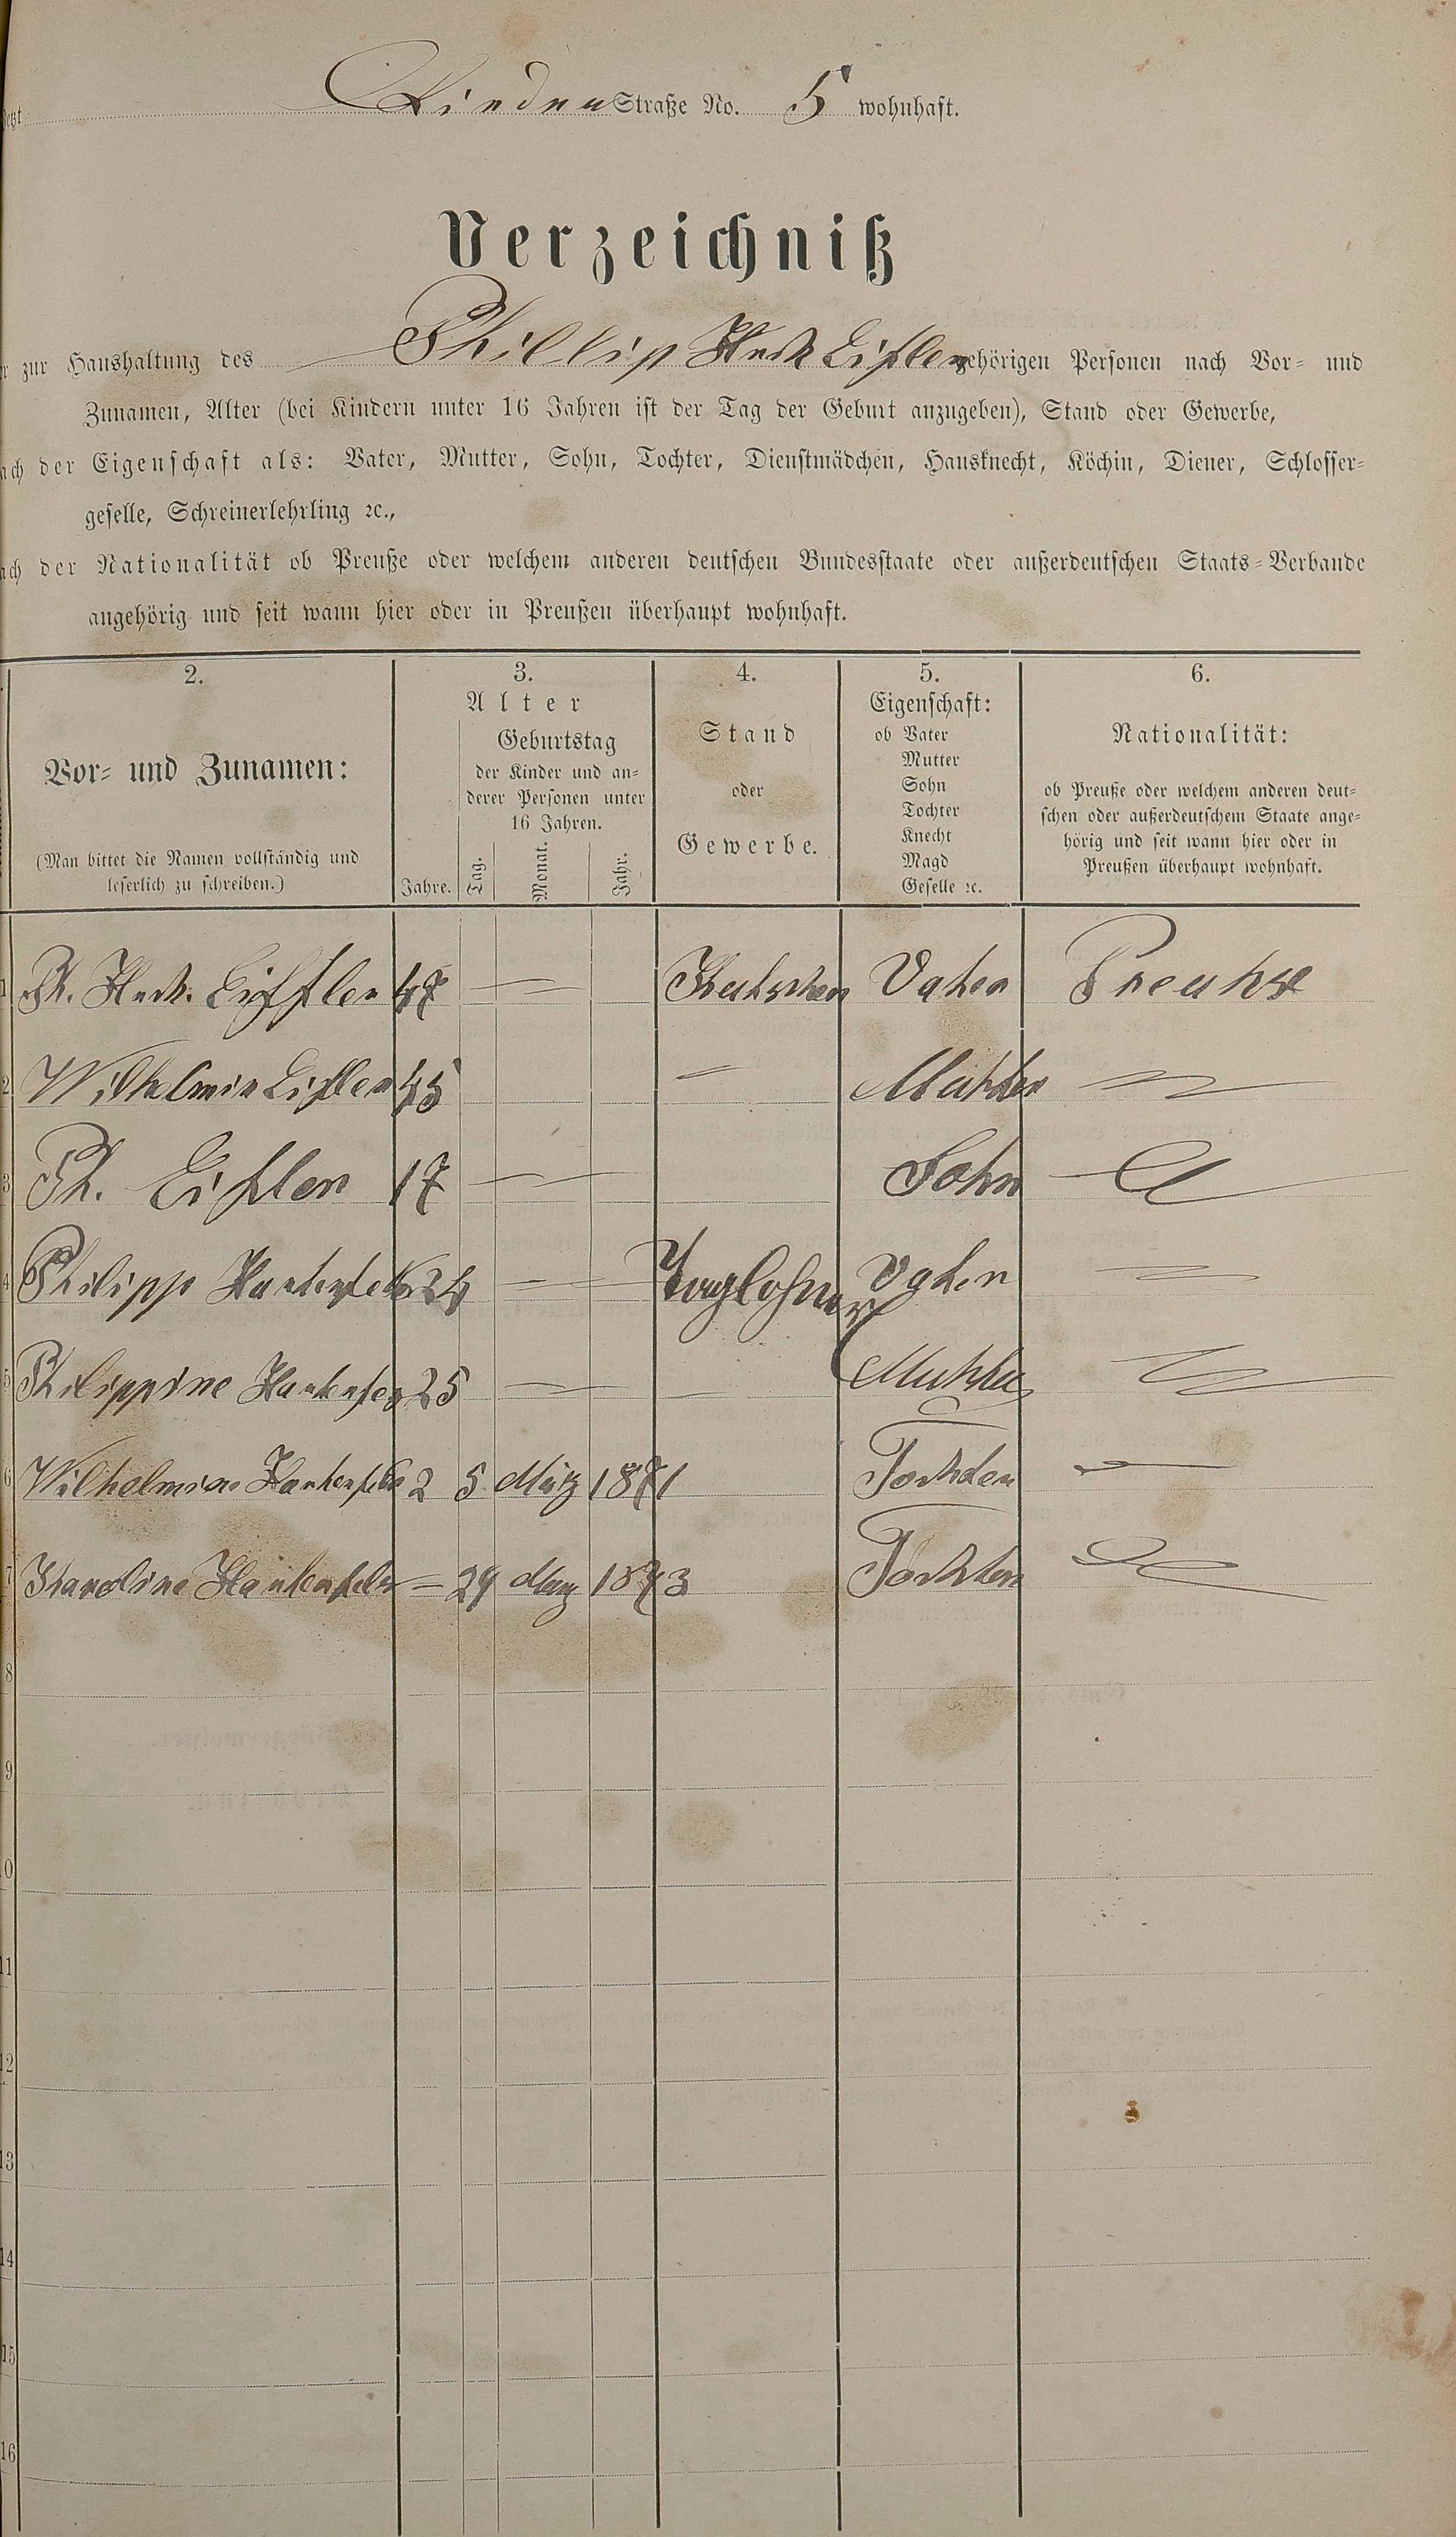 jetzt Straße No. 5 wohnhaft.
Verzeichniß
zur Haushaltung des Phillip gehörigen Personen nach Vor- und
Zunamen, Alter (bei Kindern unter 16 Jahren ist der Tag der Geburt anzugeben), Stand oder Gewerbe,
nach der Eigenschaft als: Vater, Mutter, Sohn, Tochter, Dienstmädchen, Hausknecht, Köchin, Diener, Schlosser-
geselle, Schreinerlehrling ꝛc.,
nach der Nationalität ob Preuße oder welchem anderen deutschen Bundesstaate oder außerdeutschen Staats-Verbande
angehörig und seit wann hier oder in Preußen überhaupt wohnhaft.
2. 3. 4. 5. 6.
Vor- und Zunamen:
(Man bittet die Namen vollständig und
leserlich zu schreiben.)
Alter
Jahre.
Geburtstag
der Kinder und an-
derer Personen unter
16 Jahren.
Tag. Monat. Jahr.
Stand
oder
Gewerbe.
Eigenschaft:
ob Vater
Mutter
Sohn
Tochter
Knecht
Magd
Geselle ꝛc.
Nationalität:
ob Preuße oder welchem anderen deut-
schen oder außerdeutschem Staate ange-
hörig und seit wann hier oder in
Preußen überhaupt wohnhaft.
1 Ph. 47 — Kutscher Vater
2 45 — Mutter
3 Ph. 17 — Sohn
4 Philipp 24 — Vater
5 Philippine 25 — Mutter
6 Wilhelmine 2 5 März 1871 Tochter
7 Karoline — 29 1873 Tochter
8
9
10
11
12
13
14
15
16